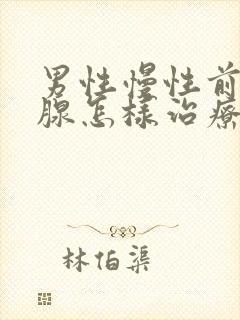 男性慢性前
腺怎样治疗
林伯渠